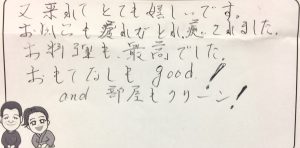 又来れてとても嬉しいです。
おふろも疲れがとれ癒されました。
お料理も、最高でした。
おもてなしも good!
and 部屋もクリーン!